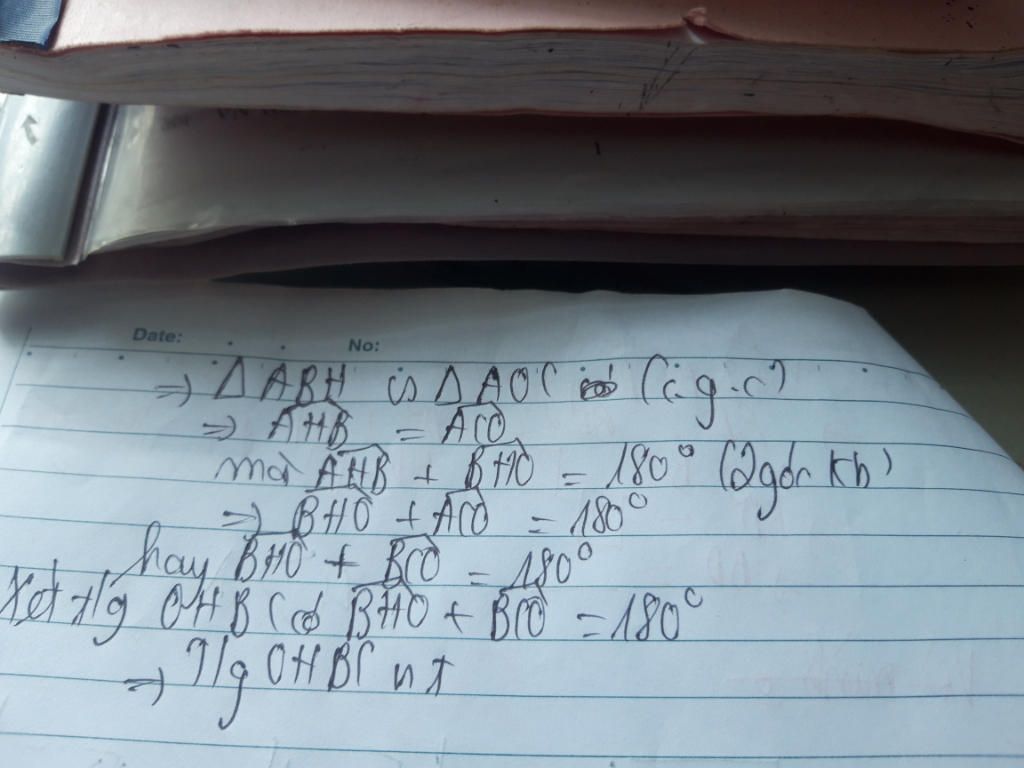 Date:
No:
=> Δ ABH ᔕ Δ AOC (c.g.c)
=> AHB = ACO
mà AHB + BHO = 180° (2góc kb)
=> BHO + ACO = 180°
hay BHO + BCO = 180°
Xét t/g OHBC có BHO + BCO = 180°
=> T/g OHBC nt